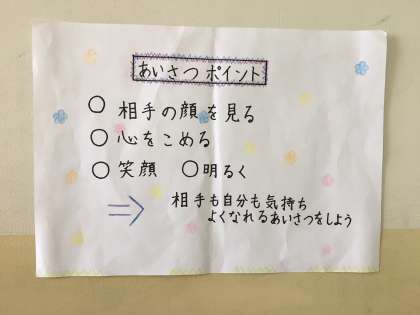 あいさつ ポイント
○ 相手の顔を見る
○ 心をこめる
○ 笑顔 ○明るく
⇒ 相手も自分も気持ち
よくなれるあいさつをしよう